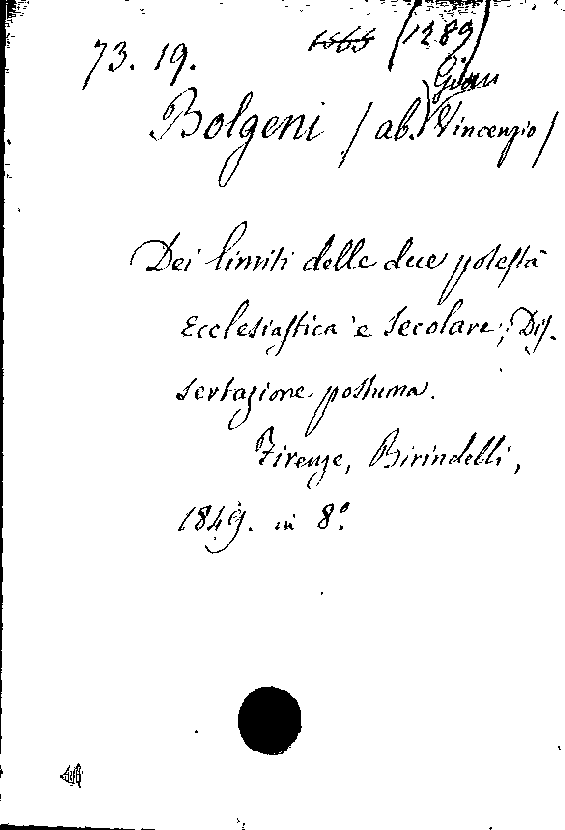 73. 19. (1289)
Gian
Bolgeni / ab. Vincenzio /
Dei limiti delle due potestà
Ecclesiastica e Secolare; Dis-
sertazione postuma.
Firenze, Birindelli,
1849. in 8º.